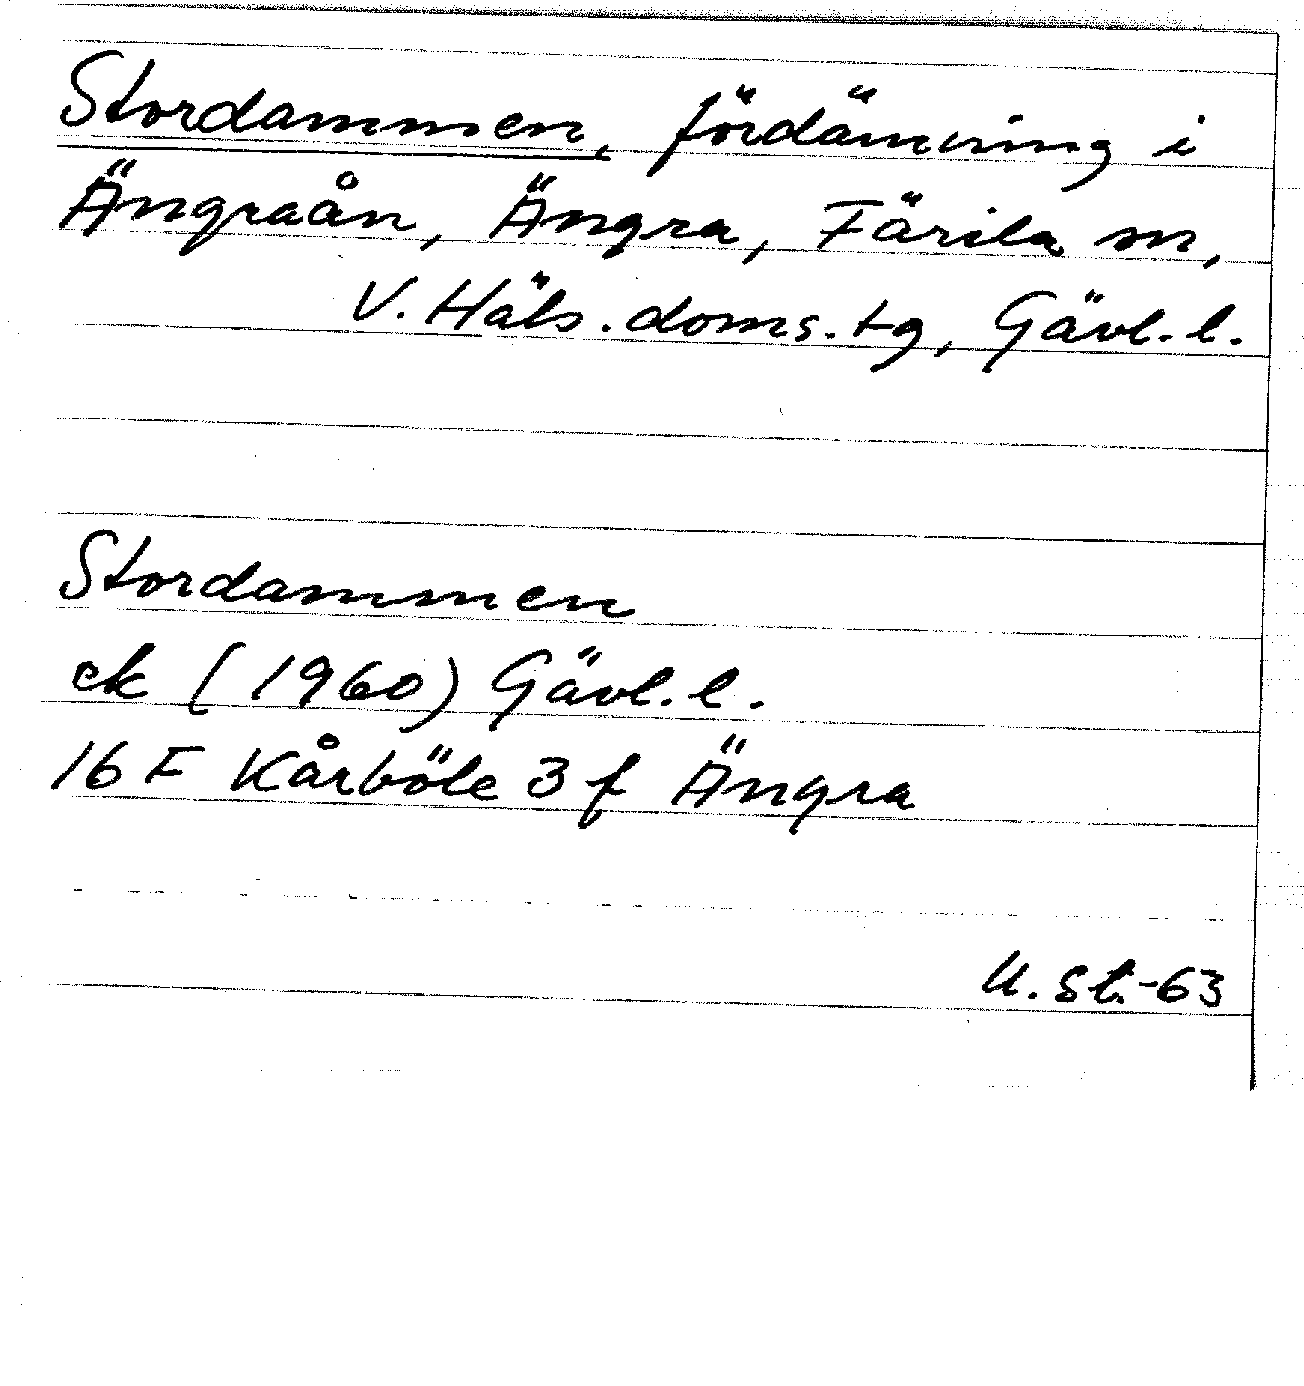 Stordammen, fördämning i
Ängraån, Ängra, Färila sn,
V. Häls. doms. tg, Gävl. l.
Stordammen
ek (1960) Gävl. l.
16 F Kårböle 3 f Ängra
U. St.-63